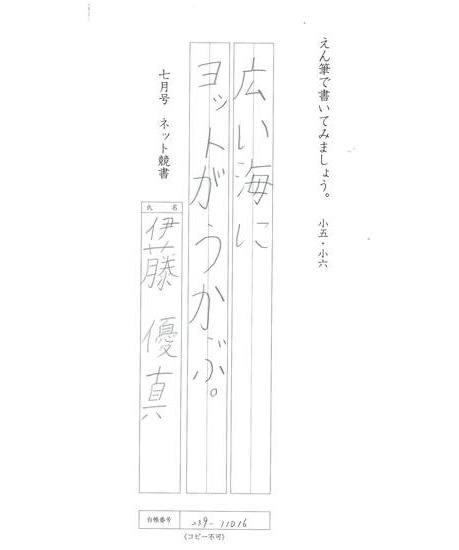 えん筆で書いてみましょう。 小五・小六
広い海に
ヨットがうかぶ。
七月号 ネット競書
氏名
伊藤 優真
台帳番号
-11016
《コピー不可》